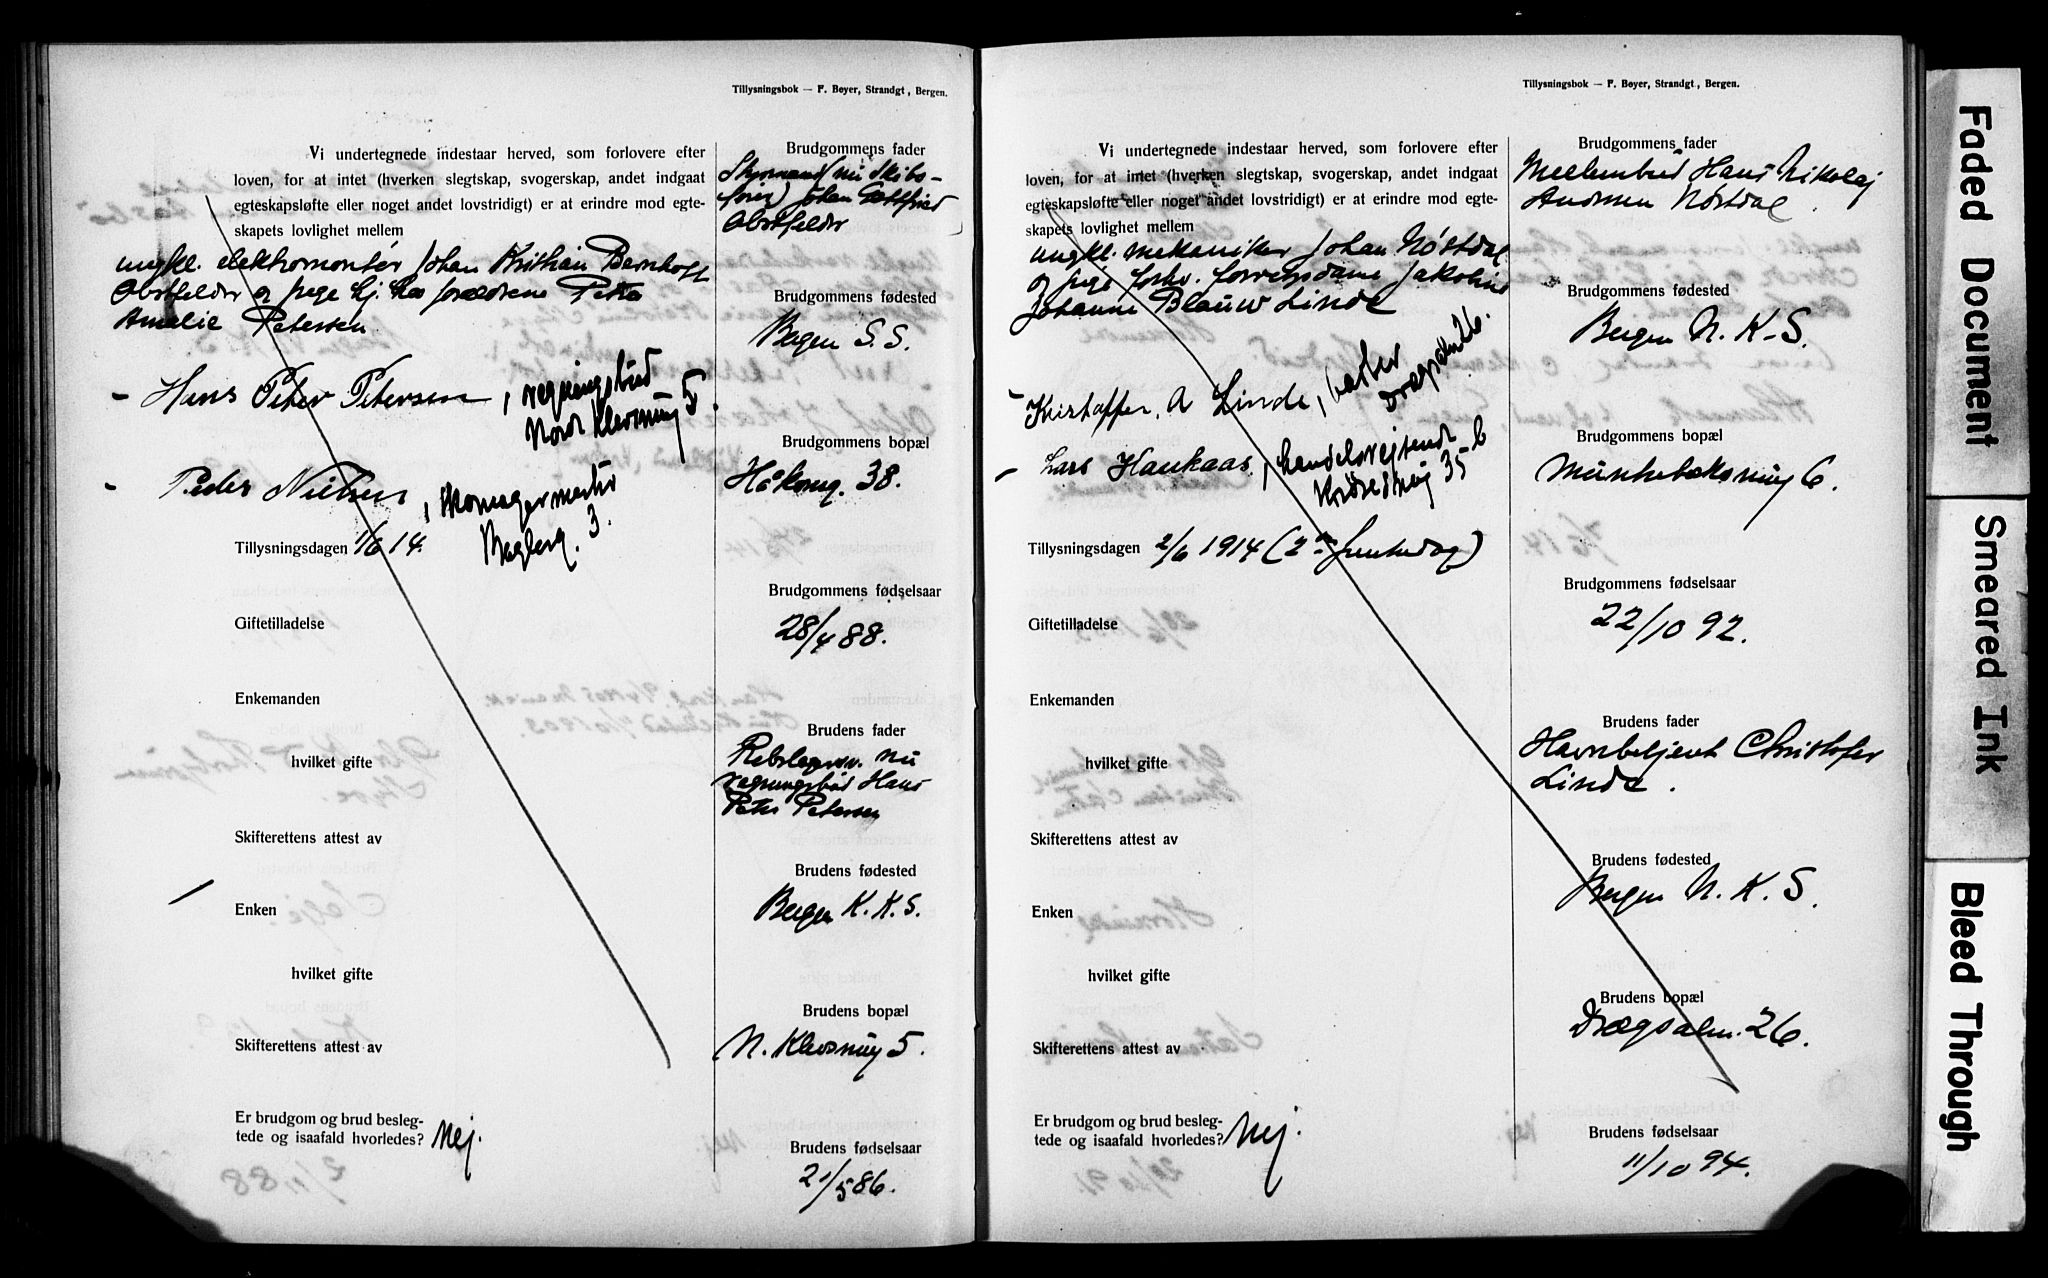 Tillysningsbok — F. Beyer, Strandgt., Bergen.
Vi undertegnede indestaar herved, som forlovere efter
loven, for at intet (hverken slegtskap, svogerskap, andet indgaat
egteskapsløfte eller noget andet lovstridigt) er at erindre mod egte-
skapets lovlighet mellem
ungkl. elektromontør Johan Kristian Bernhoft
Obstfelder og pige hj. hos forældrene Petra
Amalie Petersen
Hans Peter Petersen, regningsbud
Nordr Klevsmug 5.
Peder Nielsen, skomagermester
3.
Tillysningsdagen 1/6 14.
Giftetilladelse
Enkemanden
hvilket gifte
Skifterettens attest av
Enken
hvilket gifte
Skifterettens attest av
Er brudgom og brud besleg-
tede og isaafald hvorledes? Nej.
Brudgommens fader
Styrmand (nu Skibs-
fører) Johan Gottfried
Obstfelder
Brudgommens fødested
Bergen S. S.
Brudgommens bopæl
Håkonsg. 38.
Brudgommens fødselsaar
28/4 88.
Brudens fader
Rebslagersv. nu
regningsbud Hans
Peter Petersen
Brudens fødested
Bergen K. K. S.
Brudens bopæl
N. Klevsmug 5.
Brudens fødselsaar
21/5 86.
Tillysningsbok — F. Beyer, Strandgt., Bergen.
Vi undertegnede indestaar herved, som forlovere efter
loven, for at intet (hverken slegtskap, svogerskap, andet indgaat
egteskapsløfte eller noget andet lovstridigt) er at erindre mod egte-
skapets lovlighet mellem
ungkl. mekaniker Johan Nøstdal
og pige forhv. forretn.dame Jakobine
Johanne Blauw Linde
Kristoffer. A Linde,
Drægsalm 26.
Lars Haukaas, handelsreisende
35 b
Tillysningsdagen 2/6 1914 (2den
Giftetilladelse
Enkemanden
hvilket gifte
Skifterettens attest av
Enken
hvilket gifte
Skifterettens attest av
Er brudgom og brud besleg-
tede og isaafald hvorledes? Nej.
Brudgommens fader
Mellembud Hans Nikolaj
Andersen Nøstdal.
Brudgommens fødested
Bergen N. K. S.
Brudgommens bopæl
Munkebeksmug 6.
Brudgommens fødselsaar
22/10 92.
Brudens fader
Havnebetjent Christofer
Linde.
Brudens fødested
Bergen N. K. S.
Brudens bopæl
Drægsalm. 26.
Brudens fødselsaar
11/10 94.
Faded Document
Smeared Ink
Bleed Through